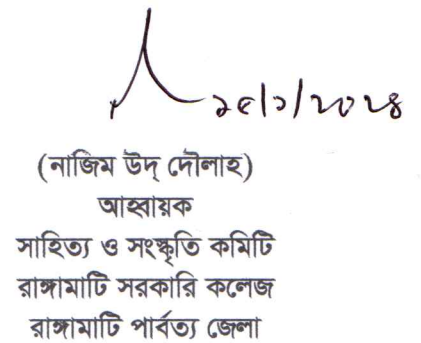 ২৫/১/২০২৪
(নাজিম উদ্ দৌলাহ)
আহ্বায়ক
সাহিত্য ও সংস্কৃতি কমিটি
রাঙ্গামাটি সরকারি কলেজ
রাঙ্গামাটি পার্বত্য জেলা